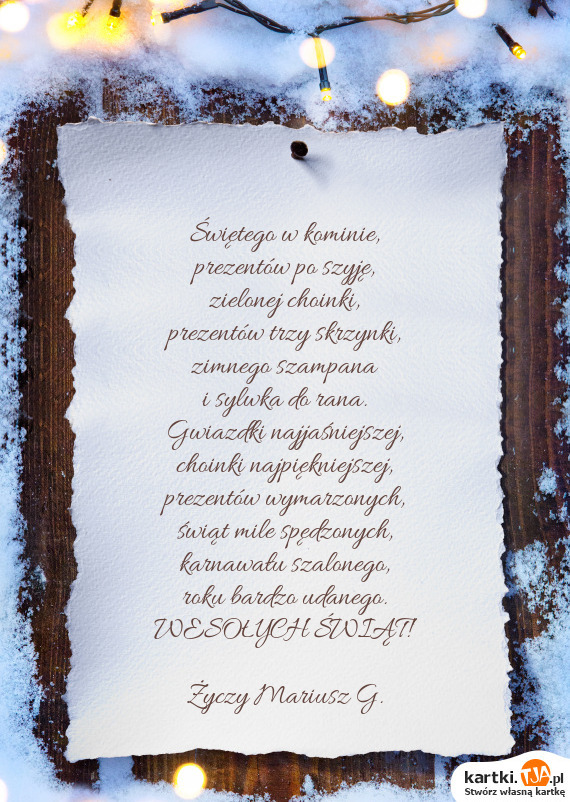 Świętego w kominie,
prezentów po szyję,
zielonej choinki,
prezentów trzy skrzynki,
zimnego szampana
i sylwka do rana.
Gwiazdki najjaśniejszej,
choinki najpiękniejszej,
prezentów wymarzonych,
świąt mile spędzonych,
karnawału szalonego,
roku bardzo udanego.
WESOŁYCH ŚWIĄT!
Życzy Mariusz G.
kartki.TJA.pl
Stwórz własną kartkę